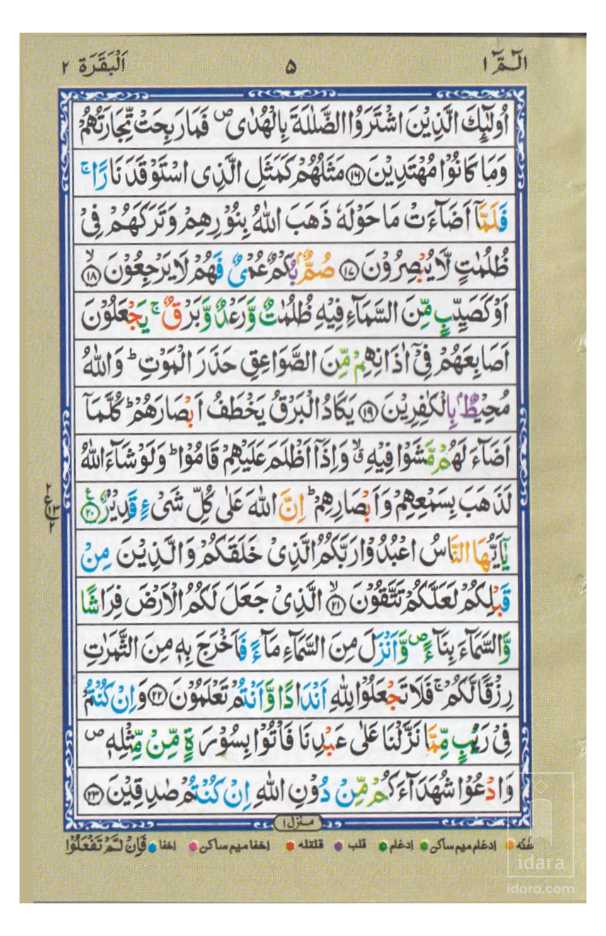 الٓمّٓ ۱ ۵ اَلْبَقَرَة ۲
اُولٰٓئِكَ الَّذِیْنَ اشْتَرَوُا الضَّلٰلَةَ بِالْهُدٰی۪ فَمَا رَبِحَتْ تِّجَارَتُهُمْ
وَمَا كَانُوْا مُهْتَدِیْنَ ﴿۱۶﴾ مَثَلُهُمْ كَمَثَلِ الَّذِی اسْتَوْقَدَ نَارًا ۚ
فَلَمَّاۤ اَضَآءَتْ مَا حَوْلَهٗ ذَهَبَ اللّٰهُ بِنُوْرِهِمْ وَتَرَكَهُمْ فِیْ
ظُلُمٰتٍ لَّا یُبْصِرُوْنَ ﴿۱۷﴾ صُمٌّۢ بُكْمٌ عُمْیٌ فَهُمْ لَا یَرْجِعُوْنَ ﴿۱۸﴾ ۙ
اَوْ كَصَیِّبٍ مِّنَ السَّمَآءِ فِیْهِ ظُلُمٰتٌ وَّرَعْدٌ وَّبَرْقٌ ۚ یَجْعَلُوْنَ
اَصَابِعَهُمْ فِیْۤ اٰذَانِهِمْ مِّنَ الصَّوَاعِقِ حَذَرَ الْمَوْتِ ؕ وَاللّٰهُ
مُحِیْطٌۢ بِالْكٰفِرِیْنَ ﴿۱۹﴾ یَكَادُ الْبَرْقُ یَخْطَفُ اَبْصَارَهُمْ ؕ كُلَّمَاۤ
اَضَآءَ لَهُمْ مَّشَوْا فِیْهِ ۙ وَاِذَاۤ اَظْلَمَ عَلَیْهِمْ قَامُوْا ؕ وَلَوْ شَآءَ اللّٰهُ
لَذَهَبَ بِسَمْعِهِمْ وَاَبْصَارِهِمْ ؕ اِنَّ اللّٰهَ عَلٰی كُلِّ شَیْءٍ قَدِیْرٌ ﴿۲۰﴾ ۠
یٰۤاَیُّهَا النَّاسُ اعْبُدُوْا رَبَّكُمُ الَّذِیْ خَلَقَكُمْ وَالَّذِیْنَ مِنْ
قَبْلِكُمْ لَعَلَّكُمْ تَتَّقُوْنَ ﴿۲۱﴾ ۙ الَّذِیْ جَعَلَ لَكُمُ الْاَرْضَ فِرَاشًا
وَّالسَّمَآءَ بِنَآءً ۪ وَّاَنْزَلَ مِنَ السَّمَآءِ مَآءً فَاَخْرَجَ بِهٖ مِنَ الثَّمَرٰتِ
رِزْقًا لَّكُمْ ۚ فَلَا تَجْعَلُوْا لِلّٰهِ اَنْدَادًا وَّاَنْتُمْ تَعْلَمُوْنَ ﴿۲۲﴾ وَاِنْ كُنْتُمْ
فِیْ رَیْبٍ مِّمَّا نَزَّلْنَا عَلٰی عَبْدِنَا فَاْتُوْا بِسُوْرَةٍ مِّنْ مِّثْلِهٖ ۪
وَادْعُوْا شُهَدَآءَكُمْ مِّنْ دُوْنِ اللّٰهِ اِنْ كُنْتُمْ صٰدِقِیْنَ ﴿۲۳﴾
منزل ۱
غنّه ادغام میم ساکن ادغام قلب قلقله اخفا میم ساکن اخفا فَاِنْ لَّمْ تَفْعَلُوْا
idara
idara.com